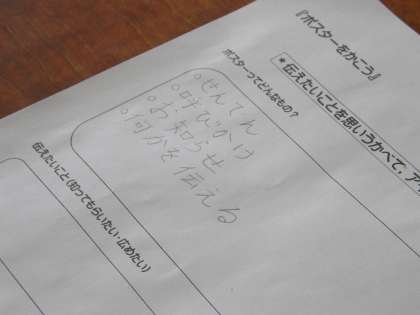 『ポスターをかこう』
*伝えたいことを思いうかべて、ア
ポスターってどんなもの?
・せんでん
・呼びかけ
・お知らせ
・何かを伝える
伝えたいこと(知ってもらいたい・広めたい)